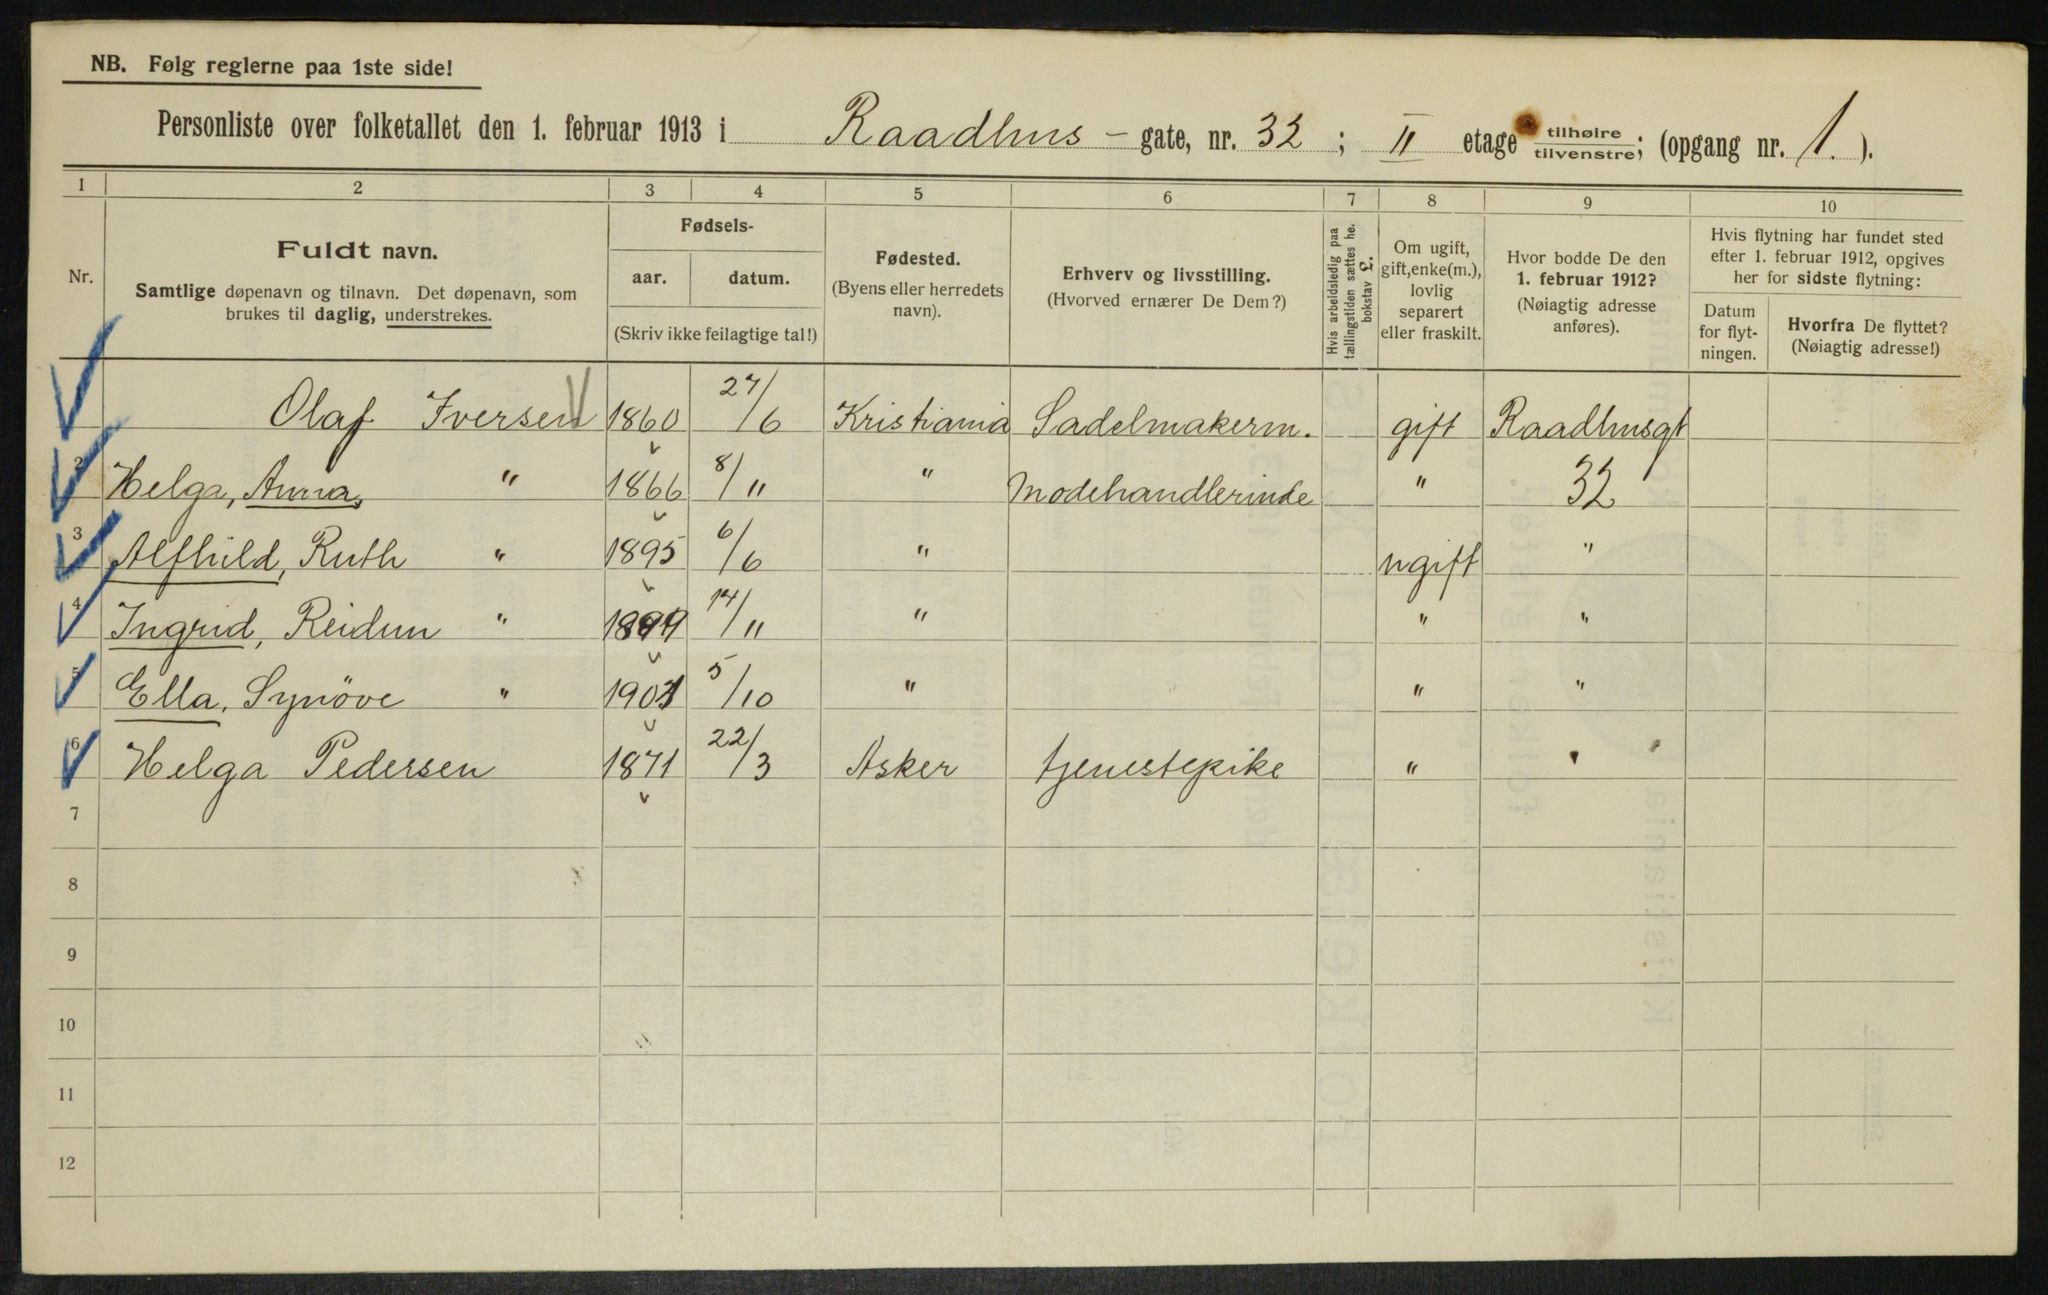 NB. Følg reglerne paa 1ste side!
Personliste over folketallet den 1. februar 1913 i Raadhus - gate, nr. 32 ; II etage tilhøire tilvenstre; (opgang nr. 1. ).
1 2 3 4 5 6 7 8 9 10
Nr.
Fuldt navn.
Samtlige døpenavn og tilnavn. Det døpenavn, som
brukes til daglig, understrekes.
Fødsels-
aar. datum.
(Skriv ikke feilagtige tal!)
Fødested.
(Byens eller herredets
navn).
Erhverv og livsstilling.
(Hvorved ernærer De Dem?)
Hvis arbeidsledig paa
tællingstiden sættes he.
bokstav L.
Om ugift,
gift, enke(m.),
lovlig
separert
eller fraskilt.
Hvor bodde De den
1. februar 1912?
(Nøiagtig adresse
anføres).
Hvis flytning har fundet sted
efter 1. februar 1912, opgives
her for sidste flytning:
Datum
for flyt-
ningen.
Hvorfra De flyttet?
(Nøiagtig adresse!)
Olaf Iversen 1860 27/6 Kristiania Sadelmakerm. gift Raadhusgt
2 Helga, Anna, " 1866 8/11 " Modehandlerinde " 32
3 Alfhild, Ruth " 1895 6/6 " ugift "
4 Ingrid, Reidun " 1899 14/11 " " "
5 Ella, Synöve " 5/10 " " "
6 Helga Pedersen 1871 22/3 Asker tjenestepike " "
7
8
9
10
11
12